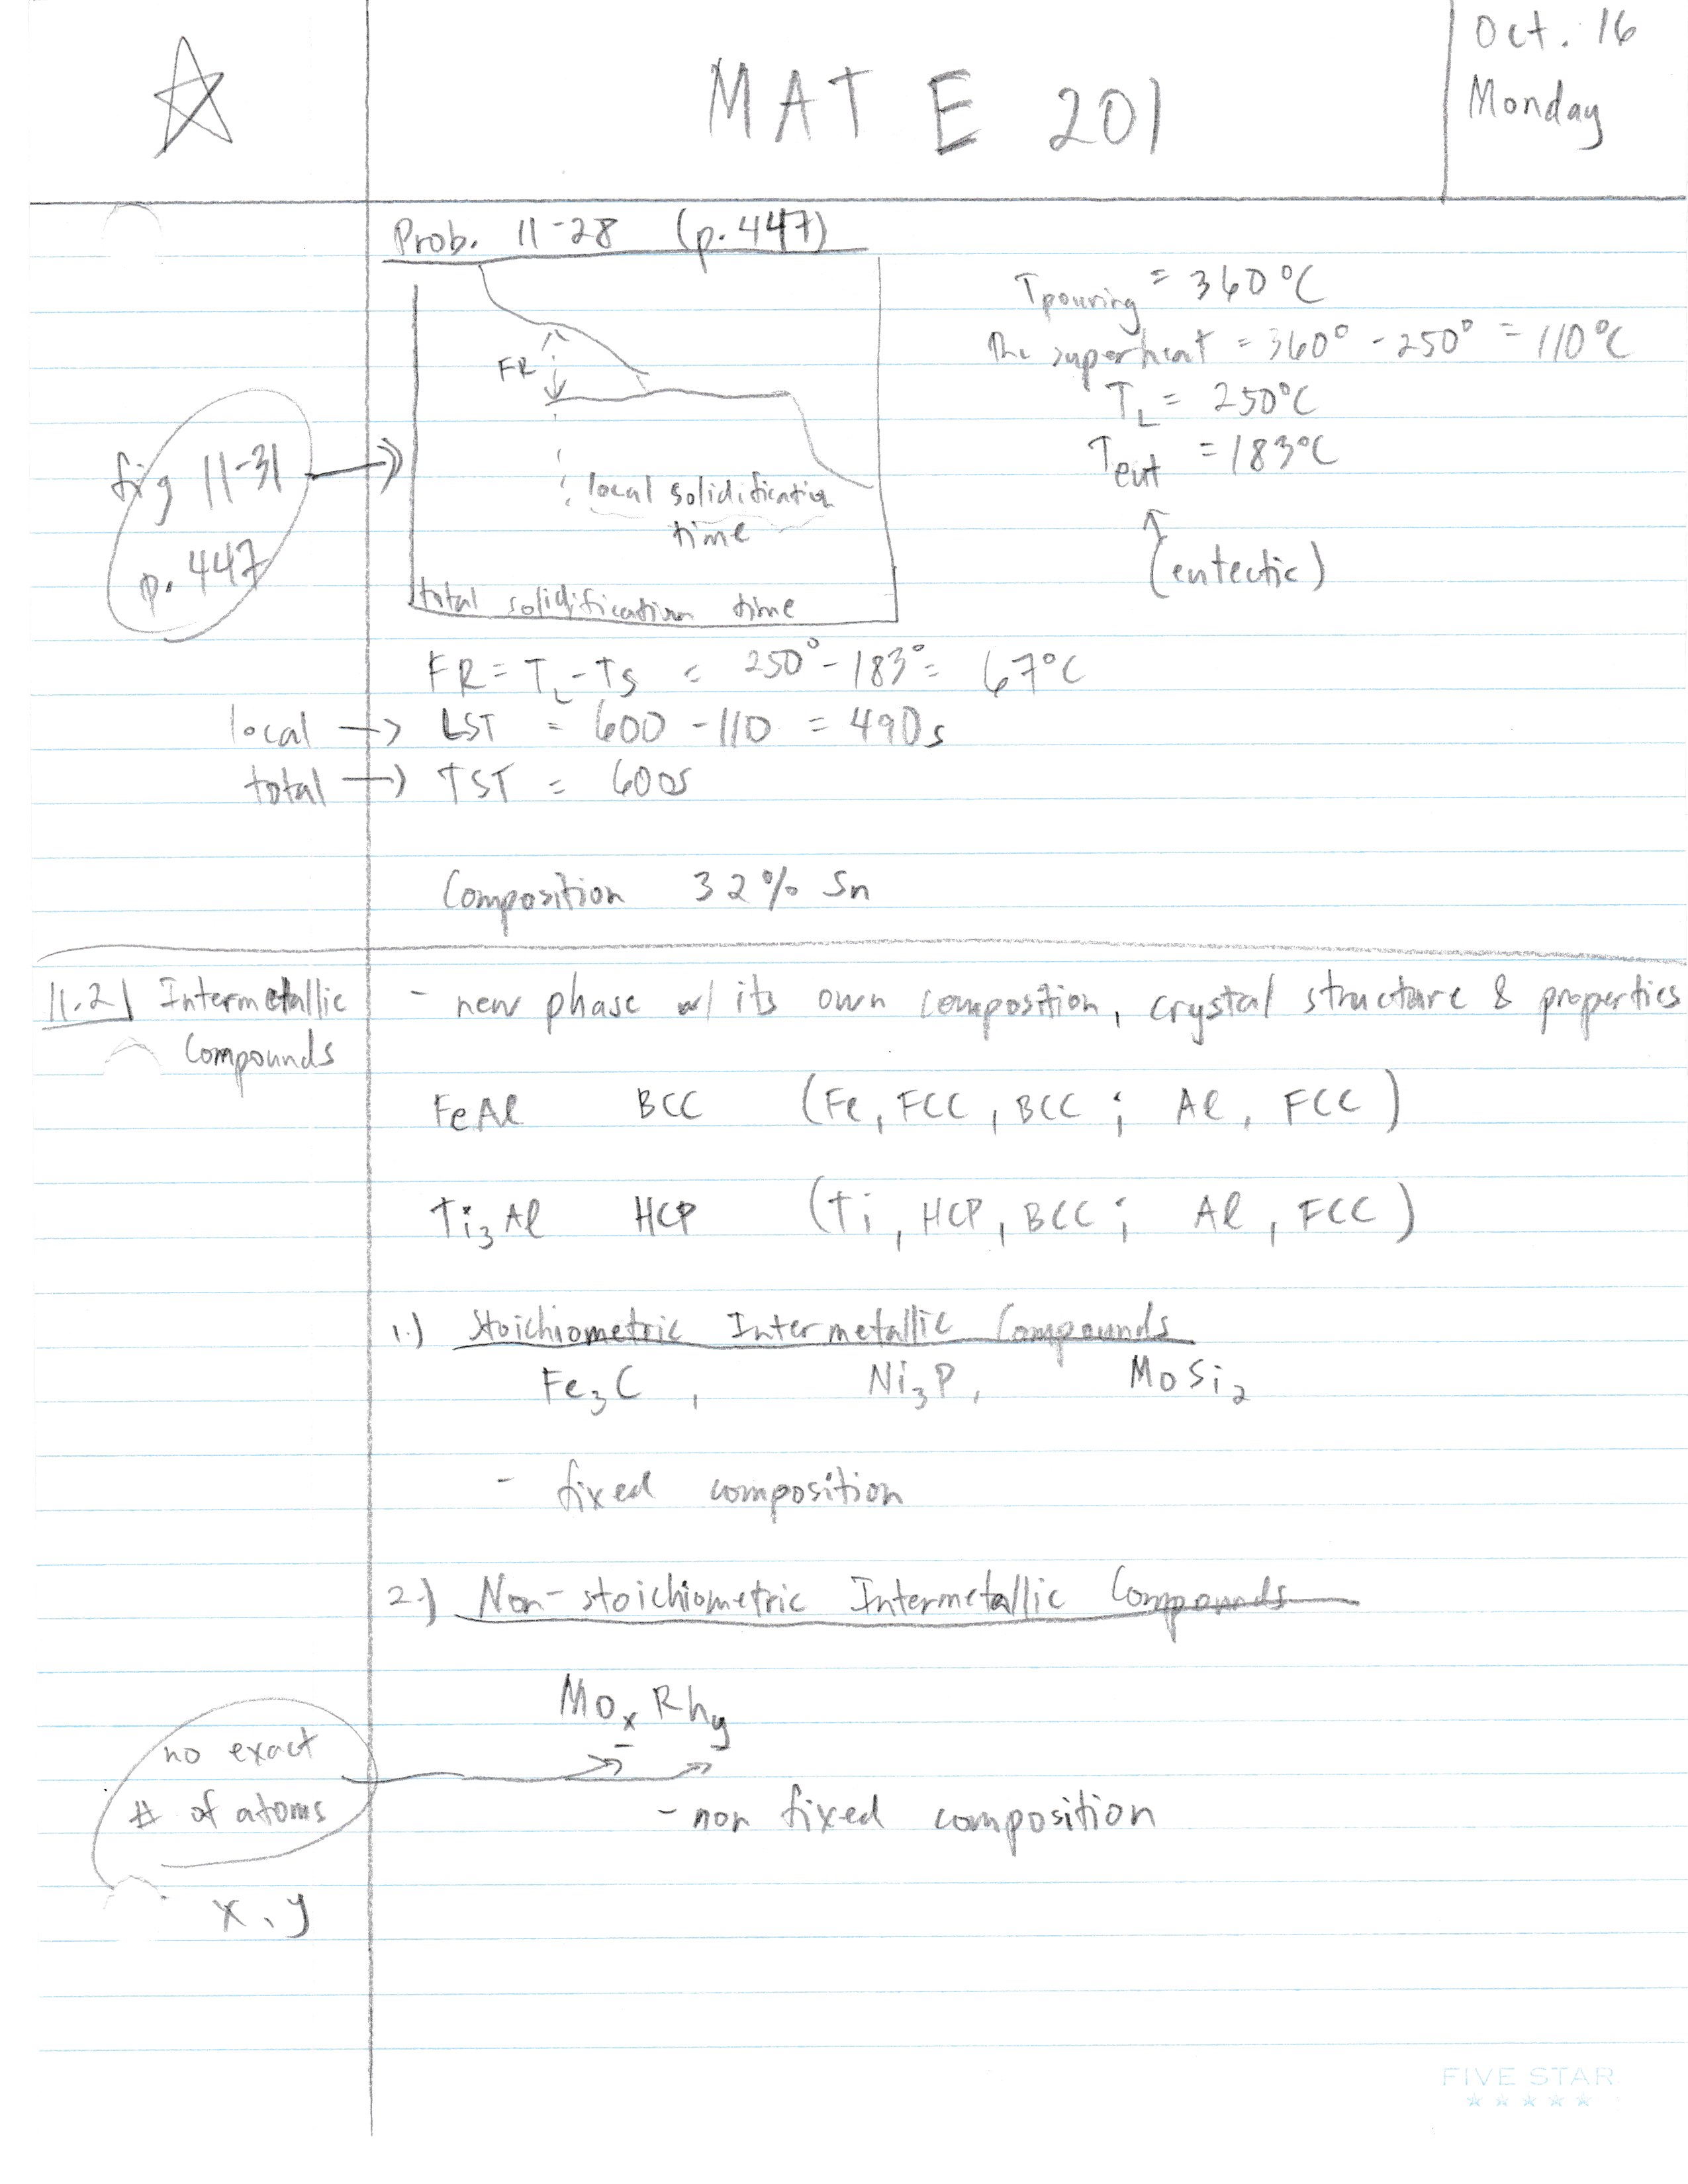 MAT E 201
Oct. 16
Monday
Prob. 11-28 (p. 447)
FR
local solidification
time
total solidification time
fig 11-31
p. 447
Tpouring = 360°C
The superheat = 360° - 250° = 110°C
TL = 250°C
Teut = 183°C
(eutectic)
FR = TL - Ts = 250° - 183° = 67°C
local → LST = 600 - 110 = 490s
total → TST = 600s
Composition 32% Sn
11.2 Intermetallic
Compounds
- new phase w/ its own composition, crystal structure & properties
FeAl BCC (Fe, FCC, BCC ; Al, FCC)
Ti3Al HCP (Ti, HCP, BCC ; Al, FCC)
1.) Stoichiometric Intermetallic Compounds
Fe3C, Ni3P, MoSi2
- fixed composition
2.) Non-stoichiometric Intermetallic Compounds
MoxRhy
no exact
# of atoms
x, y
- non fixed composition
FIVE STAR